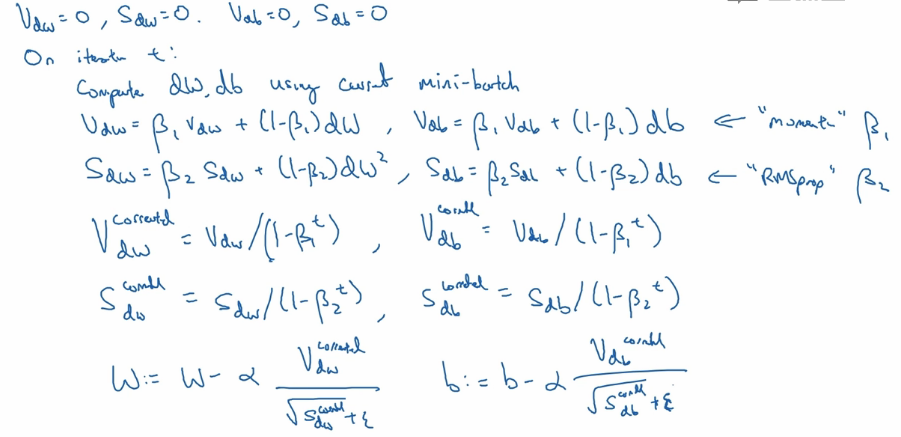 V_dw = 0, S_dw = 0. V_db = 0, S_db = 0
On iteration t:
Compute dW, db using current mini-batch
V_dw = β₁ V_dw + (1-β₁) dW, V_db = β₁ V_db + (1-β₁) db ← "momentum" β₁
S_dw = β₂ S_dw + (1-β₂) dW², S_db = β₂ S_db + (1-β₂) db ← "RMSprop" β₂
V_dw^corrected = V_dw/(1-β₁^t), V_db^corrected = V_db/(1-β₁^t)
S_dw^corrected = S_dw/(1-β₂^t), S_db^corrected = S_db/(1-β₂^t)
W := W - α V_dw^corrected / √S_dw^corrected + ε b := b - α V_db^corrected / √S_db^corrected + ε